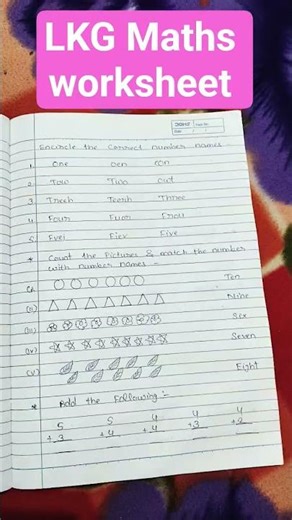 LKG Maths
worksheet
Date
Encircle the Correct number names
1. One Oen eon
2. Tow Two owt
3. Threeh Teerh Three
4. Four Fuor
5. Fvei Fiev Five
* Count the Pictures & match the number
with number names :-
(i) Ten
(ii) Nine
(iii) Six
(iv) Seven
(v) Eight
* Add the Following :-
5 5 4 4 4
+3 +4 +4 +3 +2